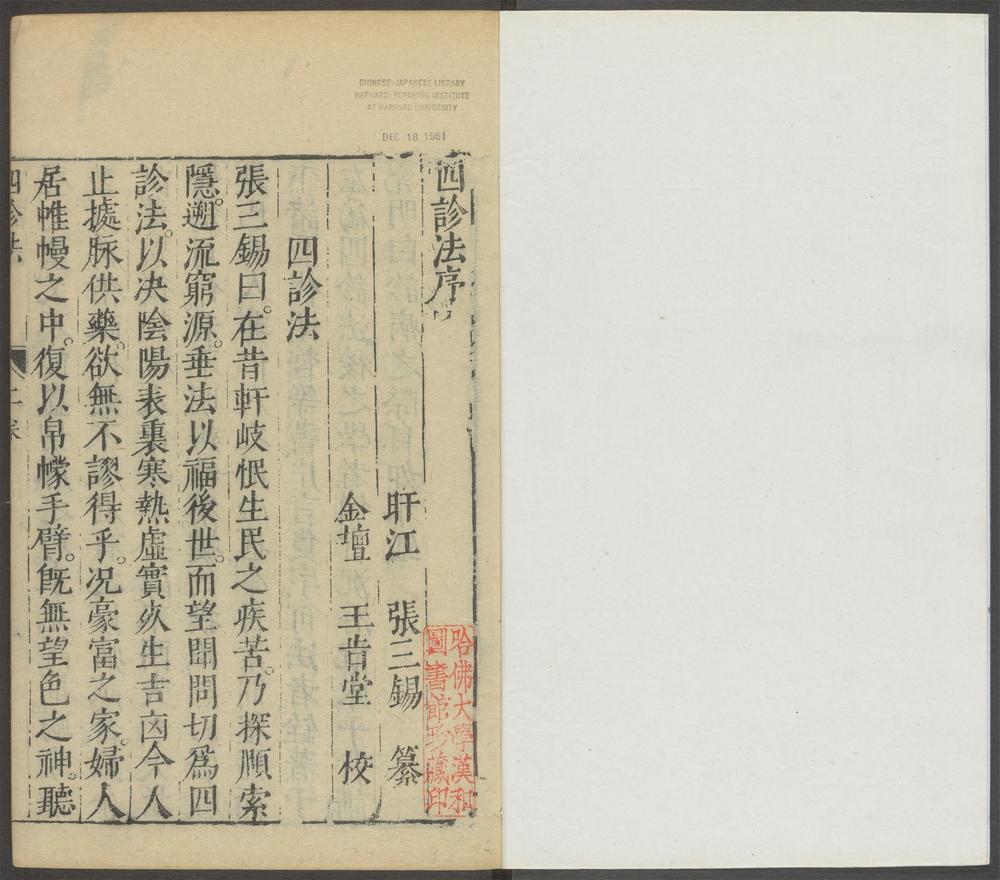 CHINESE-JAPANESE LIBRARY
HARVARD-YENCHING INSTITUTE
AT HARVARD UNIVERSITY
DEC 18 1961
四診法序
哈佛大學漢和
圖書館珍藏印
盱江 張三錫 纂
金壇 王肯堂 校
四診法
張三錫曰。在昔軒岐憫生民之疾苦。乃探賾索
隱。遡流窮源。垂法以福後世。而望聞問切爲四
診法。以决陰陽表裏寒熱虛實死生吉凶今人
止據脉供藥。欲無不謬得乎。况豪富之家。婦人
居帷幔之中。復以帛幪手臂。旣無望色之神。聽
四診法 一